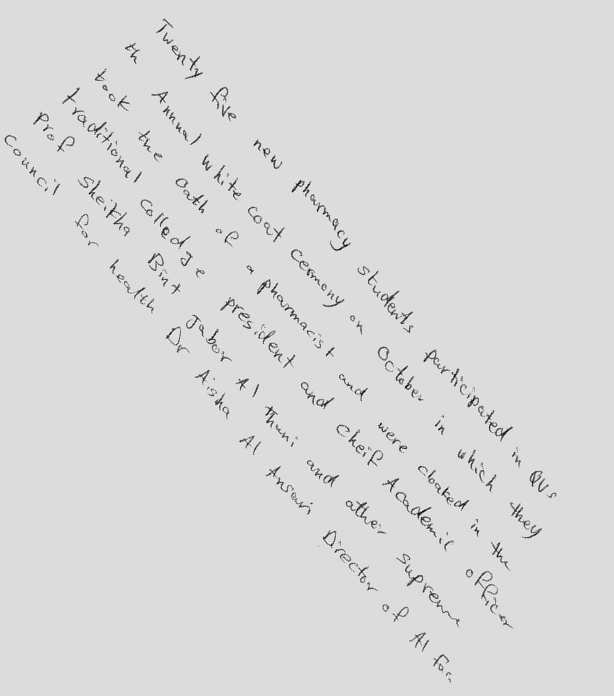 Twenty five new pharmacy students participated in QUs
th Annual white coat cermony on October in which they
took the oath of a pharmacist and were cloaked in the
traditional colledge president and cheif Academic officer
Prof Sheikha Bint Jabor Al Thani and other supreme
Council for health Dr Aisha Al Ansari Director of Al